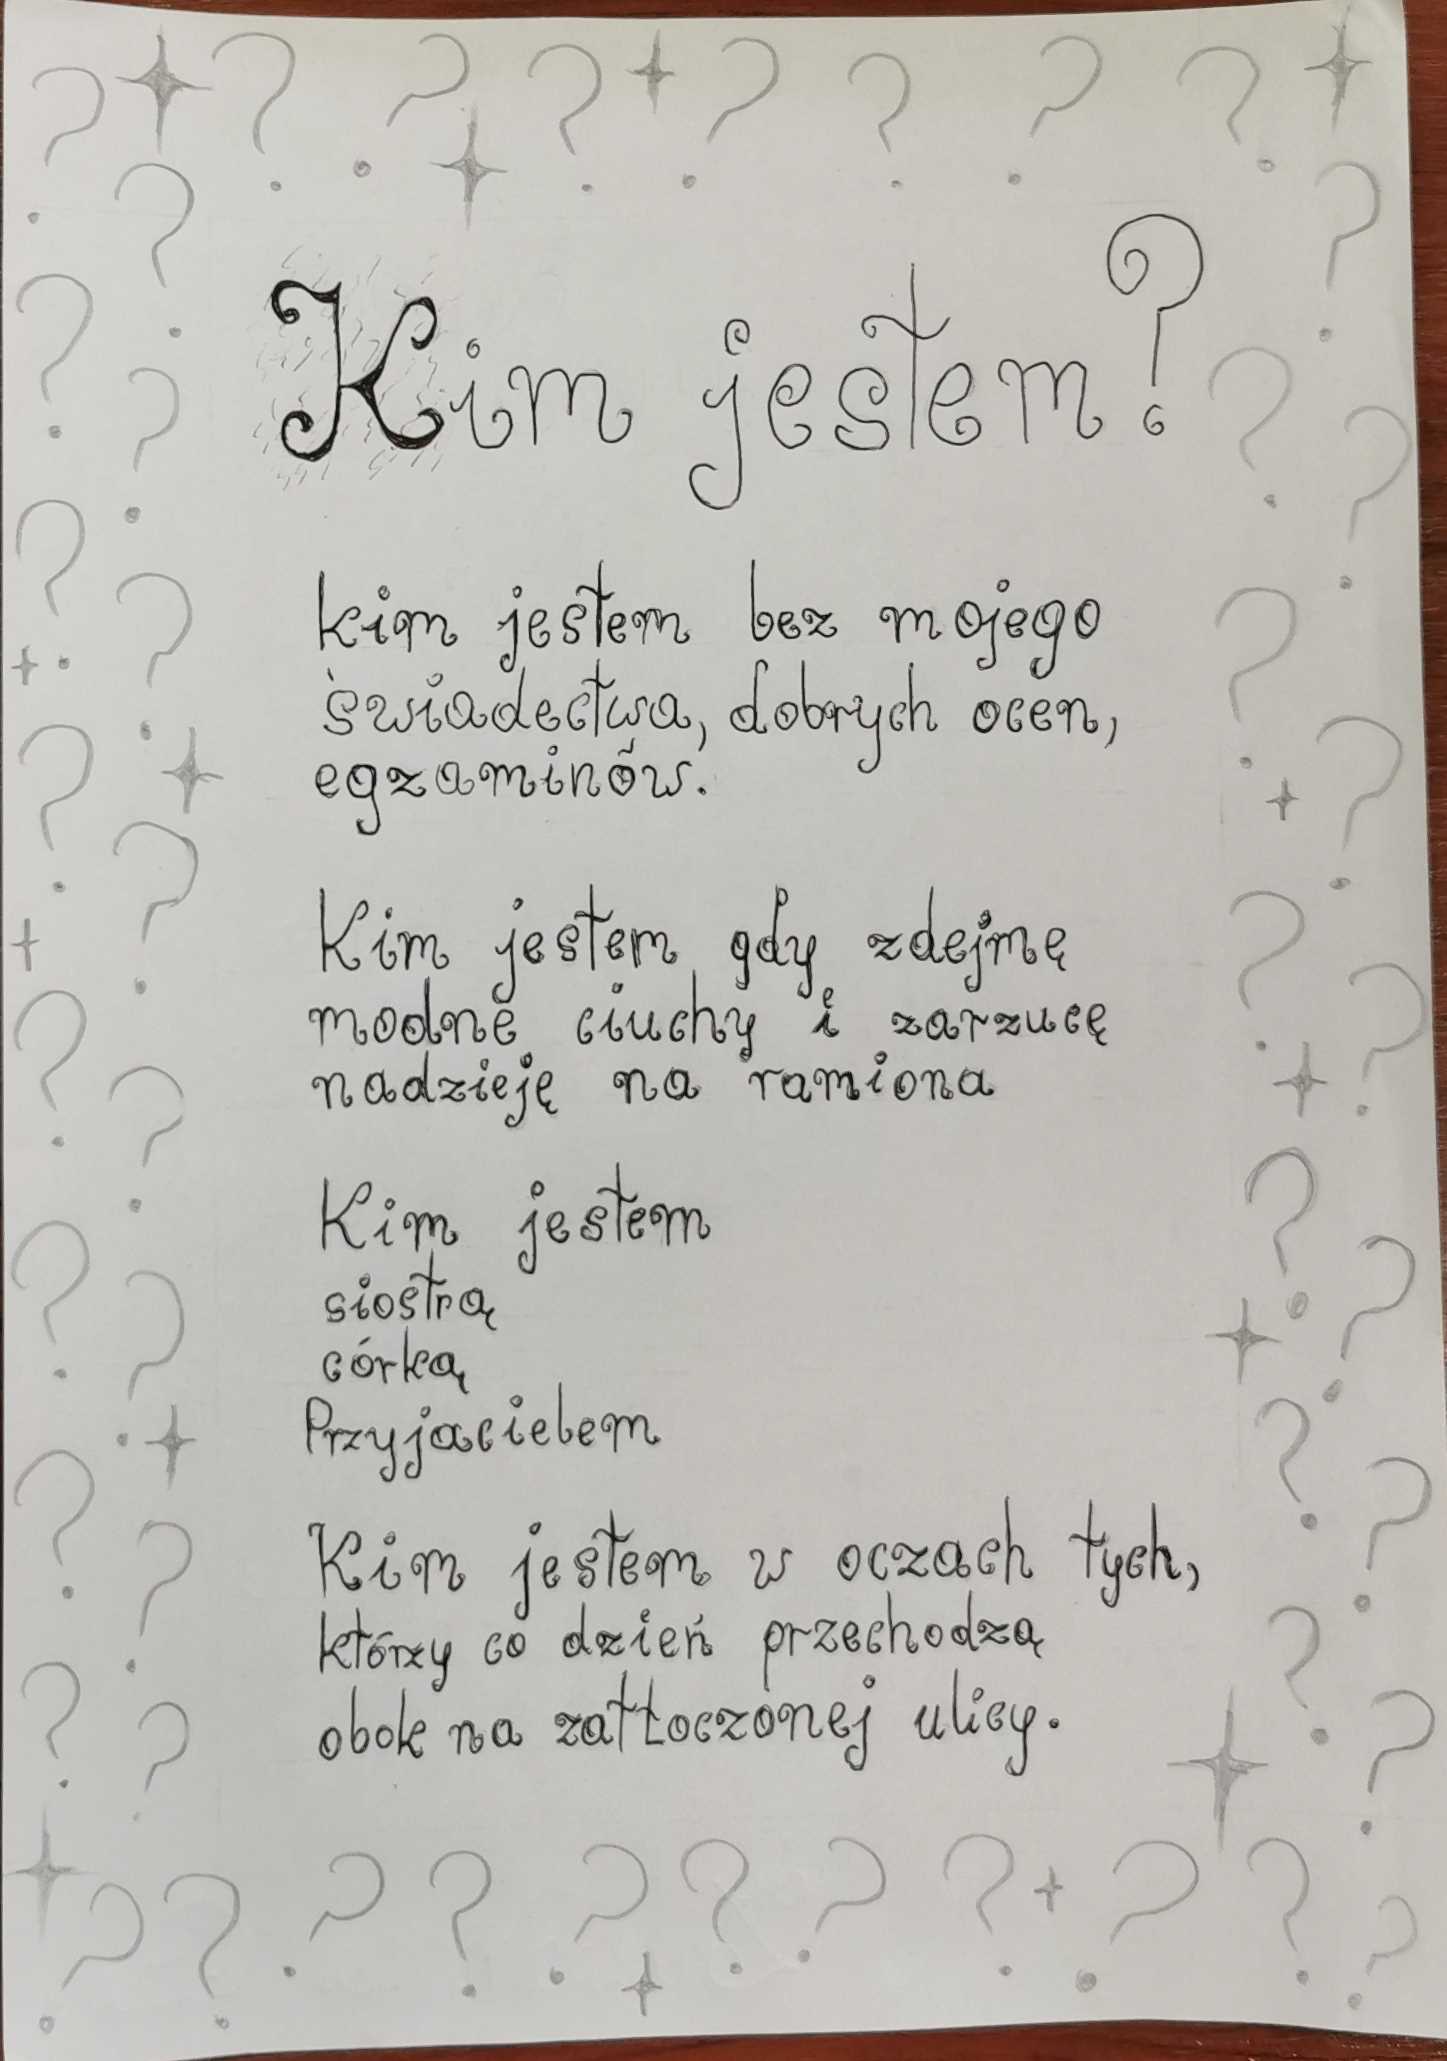 Kim jestem?
kim jestem bez mojego
świadectwa, dobrych ocen,
egzaminów.
Kim jestem gdy zdejmę
modne ciuchy i zarzucę
nadzieję na ramiona
Kim jestem
siostrą
córką
Przyjacielem
Kim jestem w oczach tych,
którzy co dzień przechodzą
obok na zatłoczonej ulicy.